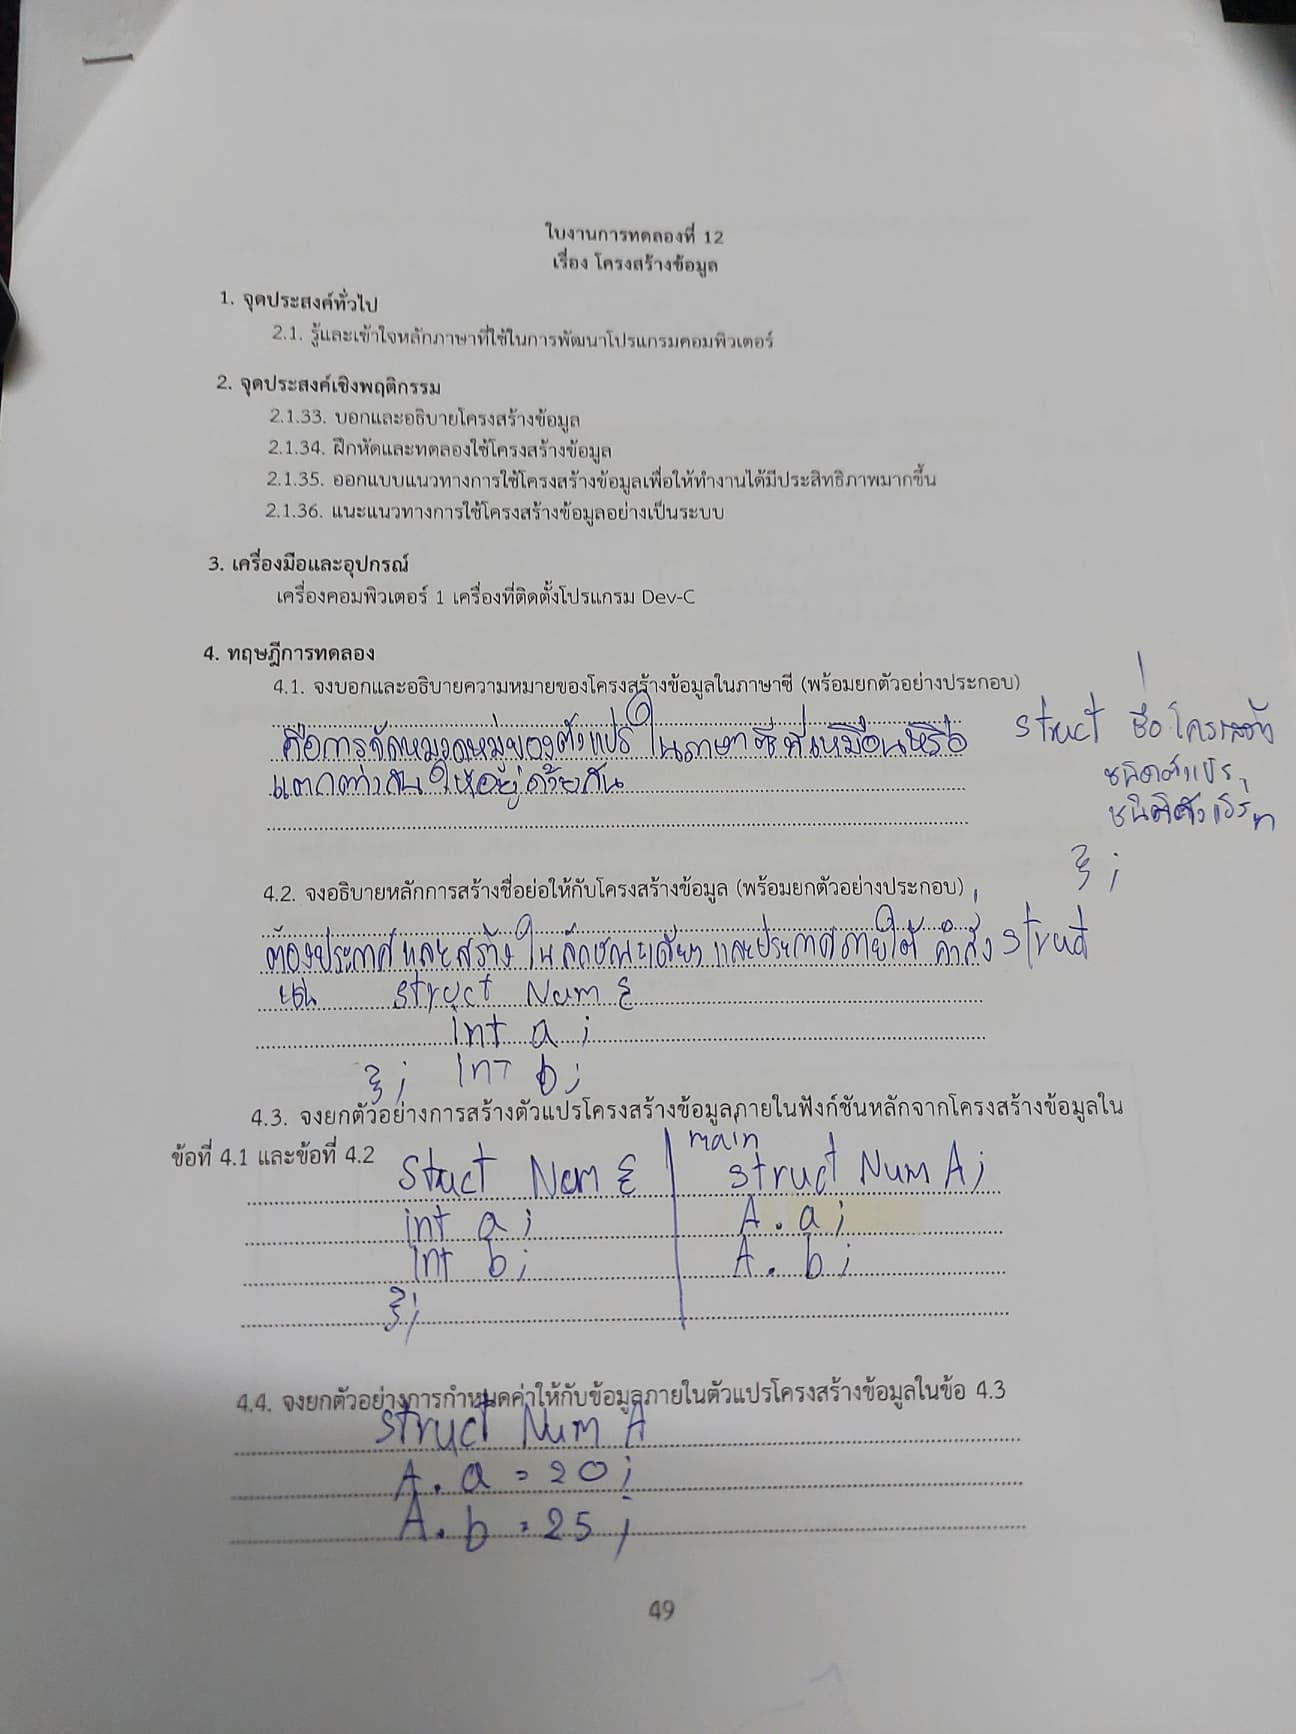 ใบงานการทดลองที่ 12
เรื่อง โครงสร้างข้อมูล
1. จุดประสงค์ทั่วไป
2.1. รู้และเข้าใจหลักภาษาที่ใช้ในการพัฒนาโปรแกรมคอมพิวเตอร์
2. จุดประสงค์เชิงพฤติกรรม
2.1.33. บอกและอธิบายโครงสร้างข้อมูล
2.1.34. ฝึกหัดและทดลองใช้โครงสร้างข้อมูล
2.1.35. ออกแบบแนวทางการใช้โครงสร้างข้อมูลเพื่อให้ทำงานได้มีประสิทธิภาพมากขึ้น
2.1.36. แนะแนวทางการใช้โครงสร้างข้อมูลอย่างเป็นระบบ
3. เครื่องมือและอุปกรณ์
เครื่องคอมพิวเตอร์ 1 เครื่องที่ติดตั้งโปรแกรม Dev-C
4. ทฤษฎีการทดลอง
4.1. จงบอกและอธิบายความหมายของโครงสร้างข้อมูลในภาษาซี (พร้อมยกตัวอย่างประกอบ)
คือการจัดหมวดหมู่ของตัวแปร ในภาษาซีที่เหมือนหรือ
แตกต่างกันให้อยู่ด้วยกัน
struct ชื่อโครงสร้าง
ชนิดตัวแปร
ชนิดตัวแปร n
};
4.2. จงอธิบายหลักการสร้างชื่อย่อให้กับโครงสร้างข้อมูล (พร้อมยกตัวอย่างประกอบ)
ต้องประกาศและสร้างในลักษณะเดียว และประกาศภายใต้ คำสั่ง struct
เช่น struct Num {
int a ;
}; int b ;
4.3. จงยกตัวอย่างการสร้างตัวแปรโครงสร้างข้อมูลภายในฟังก์ชันหลักจากโครงสร้างข้อมูลใน
ข้อที่ 4.1 และข้อที่ 4.2
Stuct Num {
int a ;
int b ;
};
main
struct Num A ;
A . a ;
A . b ;
4.4. จงยกตัวอย่างการกำหนดค่าให้กับข้อมูลภายในตัวแปรโครงสร้างข้อมูลในข้อ 4.3
struct Num A
A . a = 20 ;
A . b = 25 ;
49